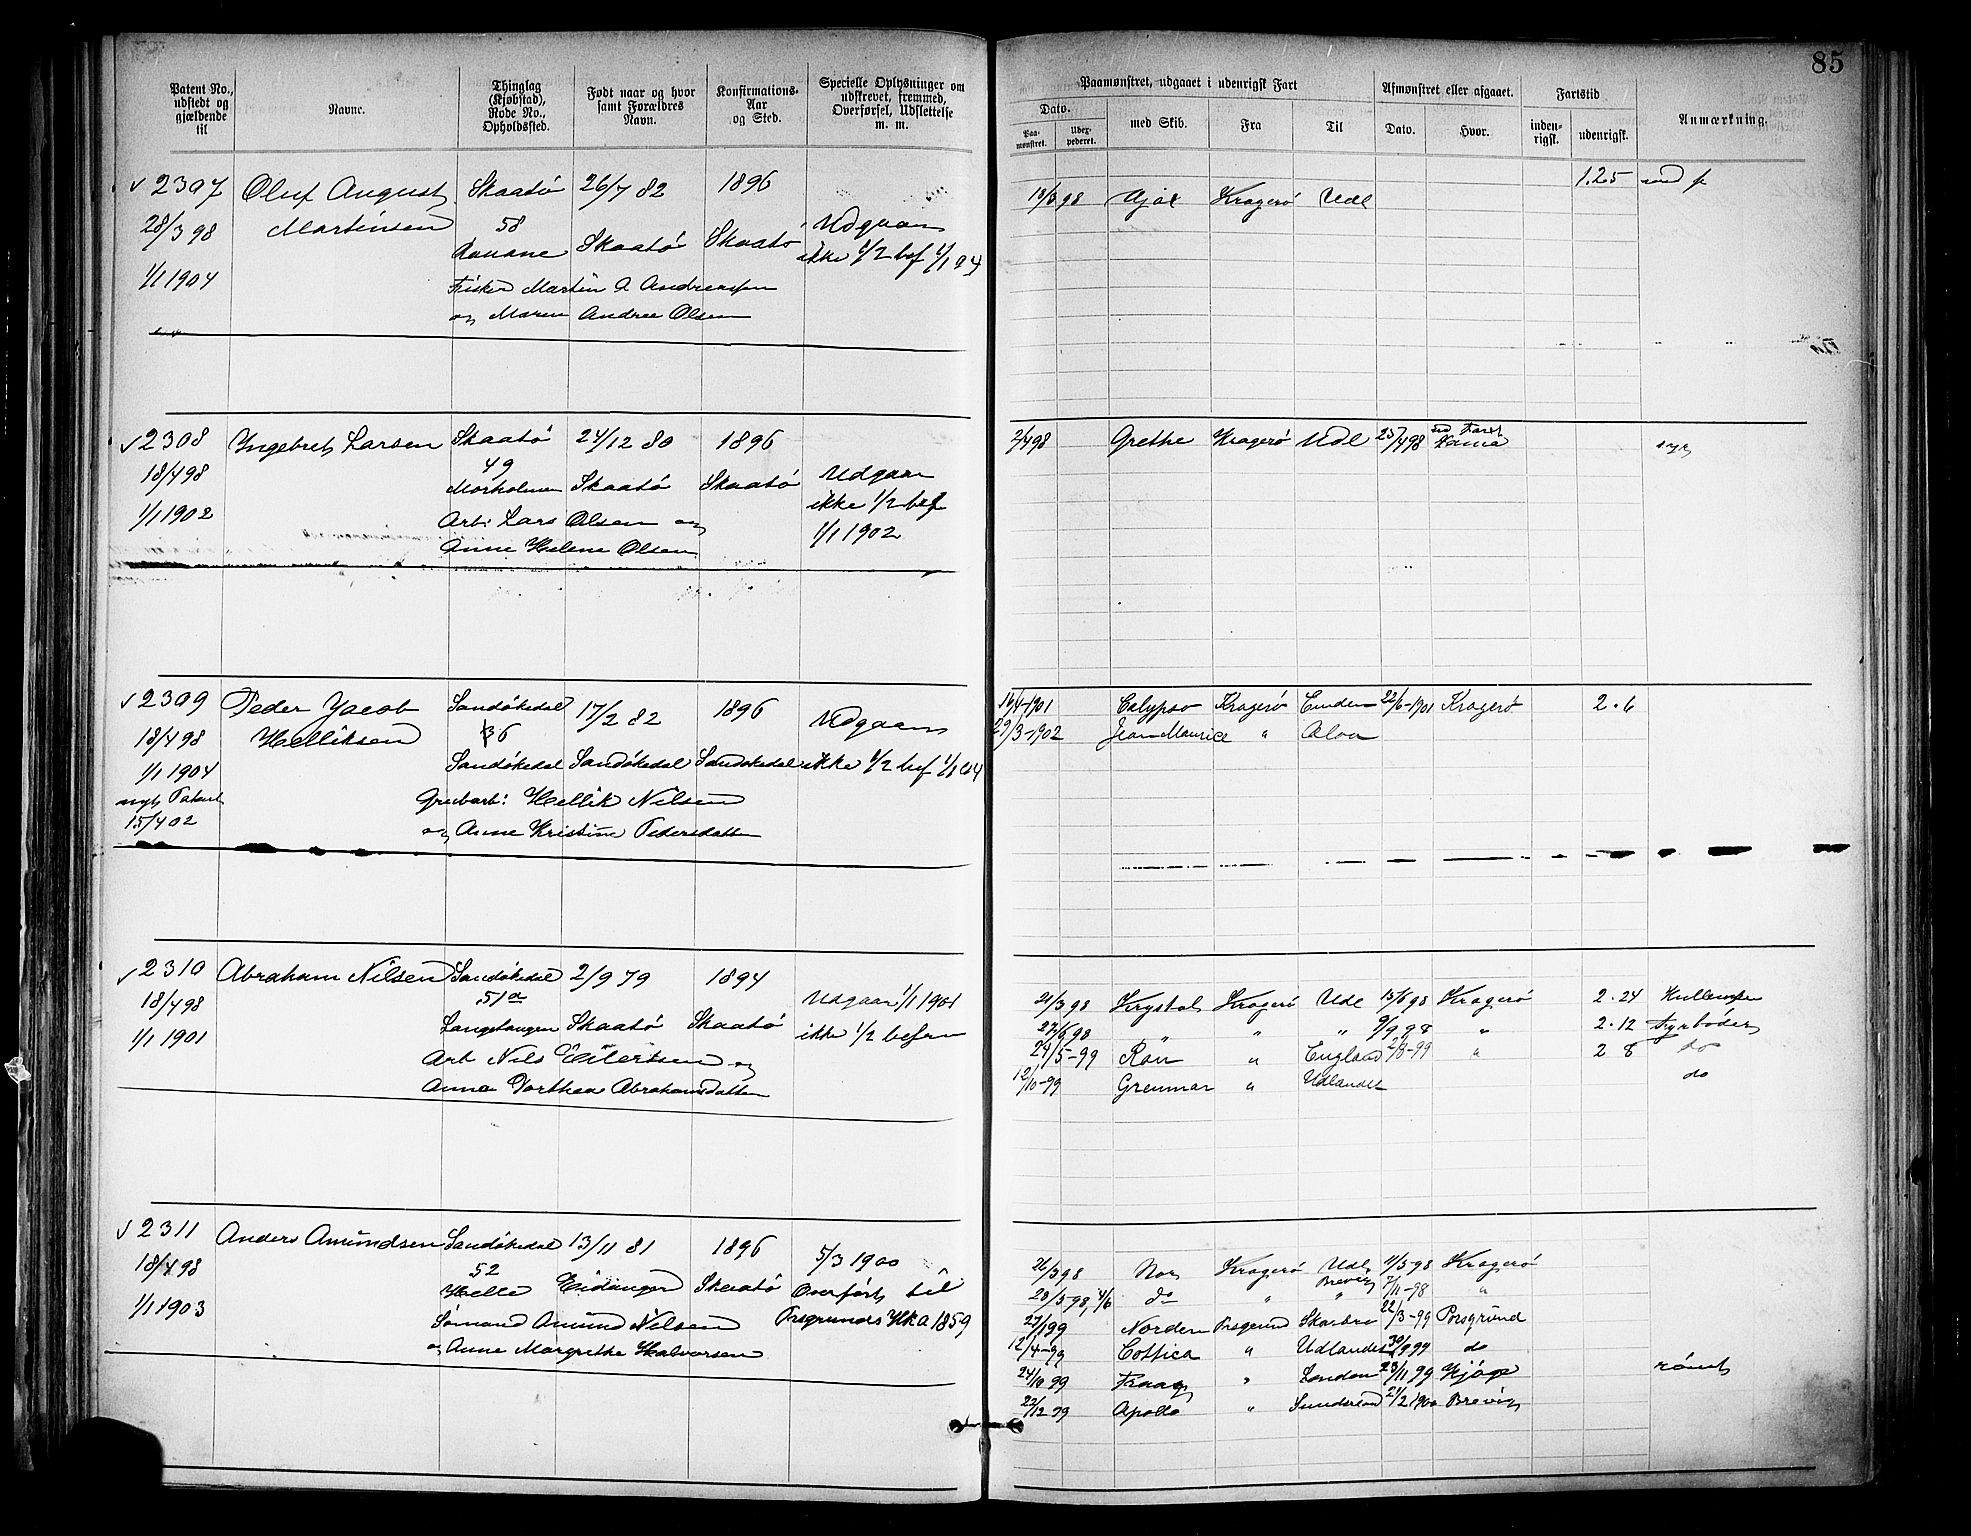 85
Patent No., udstedt og gjældende til
Navne.
Thinglag (Kjøbstad), Rode No., Opholdssted.
Født naar og hvor samt Forældres Navn.
Konfirmations-Aar og Sted.
Specielle Oplysninger om udskrevet, fremmed, Overførsel, Udslettelse m. m.
Paamønstret, udgaaet i udenrigsk Fart
Afmønstret eller afgaaet.
Fartstid
Anmærkning.
Dato.
Paa-mønstret.
Udex-pederet.
med Skib.
Fra
Til
Dato.
Hvor.
inden-rigsk.
udenrigsk.
2307 Oluf August Skaatö 26/7 82 1896
28/3 98 Martinsen 58 Skaatö Skaatö Udgaar
1/1 1904 ikke 1/2 bef 1/1 04
Fisker Martin A Andreassen
og Maren Andrea Olsen
1.25
18/6 98 Ajax Kragerö Udl
2308 Ingebret Larsen Skaatö 24/12 80 1896
18/4 98 49 Udgaar
Morholmen Skaatö Skaatö ikke 1/2 bef
1/1 1902 Arb: Lars Olsen og 1/1 1902
Anne Helene Olsen
2/4 98 Grethe Kragerö Udl 25/4 98
syg
2309 Peder Jacob Sandökedal 17/2 82 1896 Udgaar
18/4 98 Helliksen 36
1/1 1904 Sandökedal Sandökedal Sandökedal ikke 1/2 bef 1/1 04
nyt Patent Grubarb: Hellik Nilsen
15/4 02 og Anne Kristine Pedersdatter
14/4-1901 Calypso Kragerö Emden 22/6-1901 Kragerö 2.6
29/3-1902 Jean Maurice " Aloa
2310 Abraham Nilsen Sandökedal 2/9 79 1894
18/4 98 51a Udgaar 1/1 1901
1/1 1901 Langetangen Skaatö Skaatö ikke 1/2 befaren
Arb Nils Eilertsen og
Anna Dorthea Abrahamsdatter
21/3 98 Krystal Kragerö Udl 15/6 98 Kragerö 2.24 Kullemper
27/6 98 " " " 9/9 98 " 2.12 Fyrböder
24/5-99 Ran " England 2/8-99 " 2 8 do
12/10-99 Grenmar " Udlandet do
2311 Anders Amundsen Sandökedal 13/11 81 1896 5/3 1900
18/4 98 52
Helle Eidanger Skaatö Overfört til
1/1 1903 Sömand Amund Nilsen Prsgrunds Hk a 1859
og Anne Margrethe Halvorsen
26/3 98 Nor Kragerö Udl 11/5-98 Kragerö
20/5-98, 4/6 do " Brevig 7/11-98 "
27/1 99 Norden Prsgrund 22/3-99 Porsgrund
12/4-99 Cottica " Udlandet 30/9 99 do
24/10 99 " London 23/11 99 Kjöge römt
22/12 99 Apollo " Sunderland 21/2 1900 Brevig